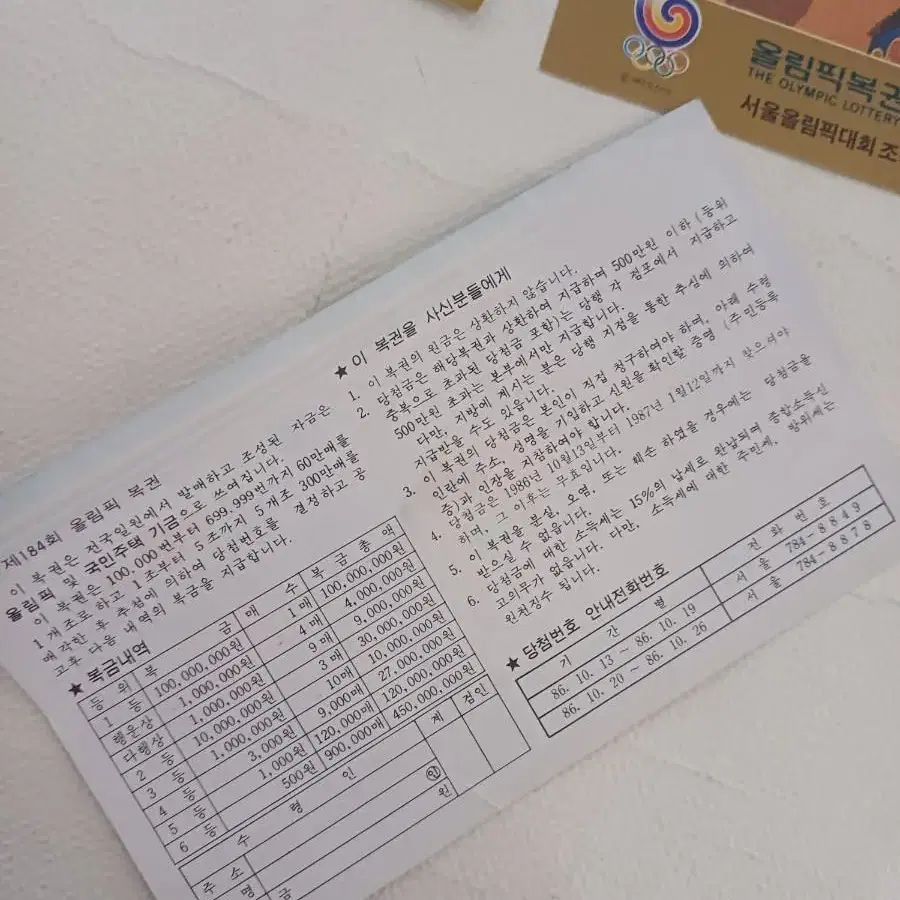 올림픽복권
THE OLYMPIC LOTTERY
서울올림픽대회조
제184회 올림픽 복권
이 복권은 전국일원에서 발매하고 조성된 자금은
올림픽 및 국민주택 기금으로 쓰여집니다.
이 복권은 100,000번부터 699,999번까지 60만매를
1개조로하고 1조부터 5조까지 5개조 300만매를
매각한 후 추첨에 의하여 당첨번호를 결정하고 공
고후 다음 내역의 복금을 지급합니다.
★ 복금내역
등 위 복 금 매 수 복금총액
1 등 100,000,000원 1매 100,000,000원
행운상 1,000,000원 4매 4,000,000원
다행상 1,000,000원 9매 9,000,000원
2 등 10,000,000원 3매 30,000,000원
3 등 1,000,000원 10매 10,000,000원
4 등 3,000원 9,000매 27,000,000원
5 등 1,000원 120,000매 120,000,000원
6 등 500원 900,000매 450,000,000원
수 령 인 계 검인
주 소
명 ㊞
금 원
★ 이 복권을 사신분들에게
1. 이 복권의 원금은 상환하지 않습니다.
2. 당첨금은 해당복권과 상환하여 지급하며 500만원 이하(등위
중복으로 초과된 당첨금 포함)는 당행 각 점포에서 지급하고
500만원 초과는 본부에서만 지급합니다.
다만, 지방에 계시는 분은 당행 지점을 통한 추심에 의하여
지급받을 수도 있읍니다.
3. 이 복권의 당첨금은 본인이 직접 청구하여야 하며, 아래 수령
인란에 주소, 성명을 기입하고 신원을 확인할 증명 (주민등록
증)과 인장을 지참하여야 합니다.
4. 당첨금은 1986년 10월13일부터 1987년 1월12일까지 찾으여야
하며, 그 이후는 무효입니다.
5. 이 복권을 분실, 오염, 또는 훼손 하였을 경우에는 당첨금을
받으실 수 없읍니다.
6. 당첨금에 대한 소득세는 15%의 납세로 완납되며 종합소득신
고의무가 없읍니다. 다만, 소득세에 대한 주민세, 방위세는
원천징수 됩니다.
★ 당첨번호 안내전화번호
기 간 별 전 화 번 호
86. 10. 13 ~ 86. 10. 19 서 울 784-8849
86. 10. 20 ~ 86. 10. 26 서 울 784-8878